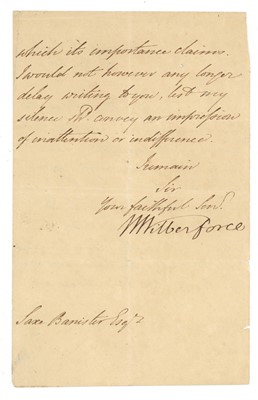 which its importance claims.
I would not however any longer
delay writing to you, lest my
silence shd. convey an impression
of inattention or indifference.
I remain
Sir
Your faithful Servt.
W Wilberforce
Saxe Banister Esqr